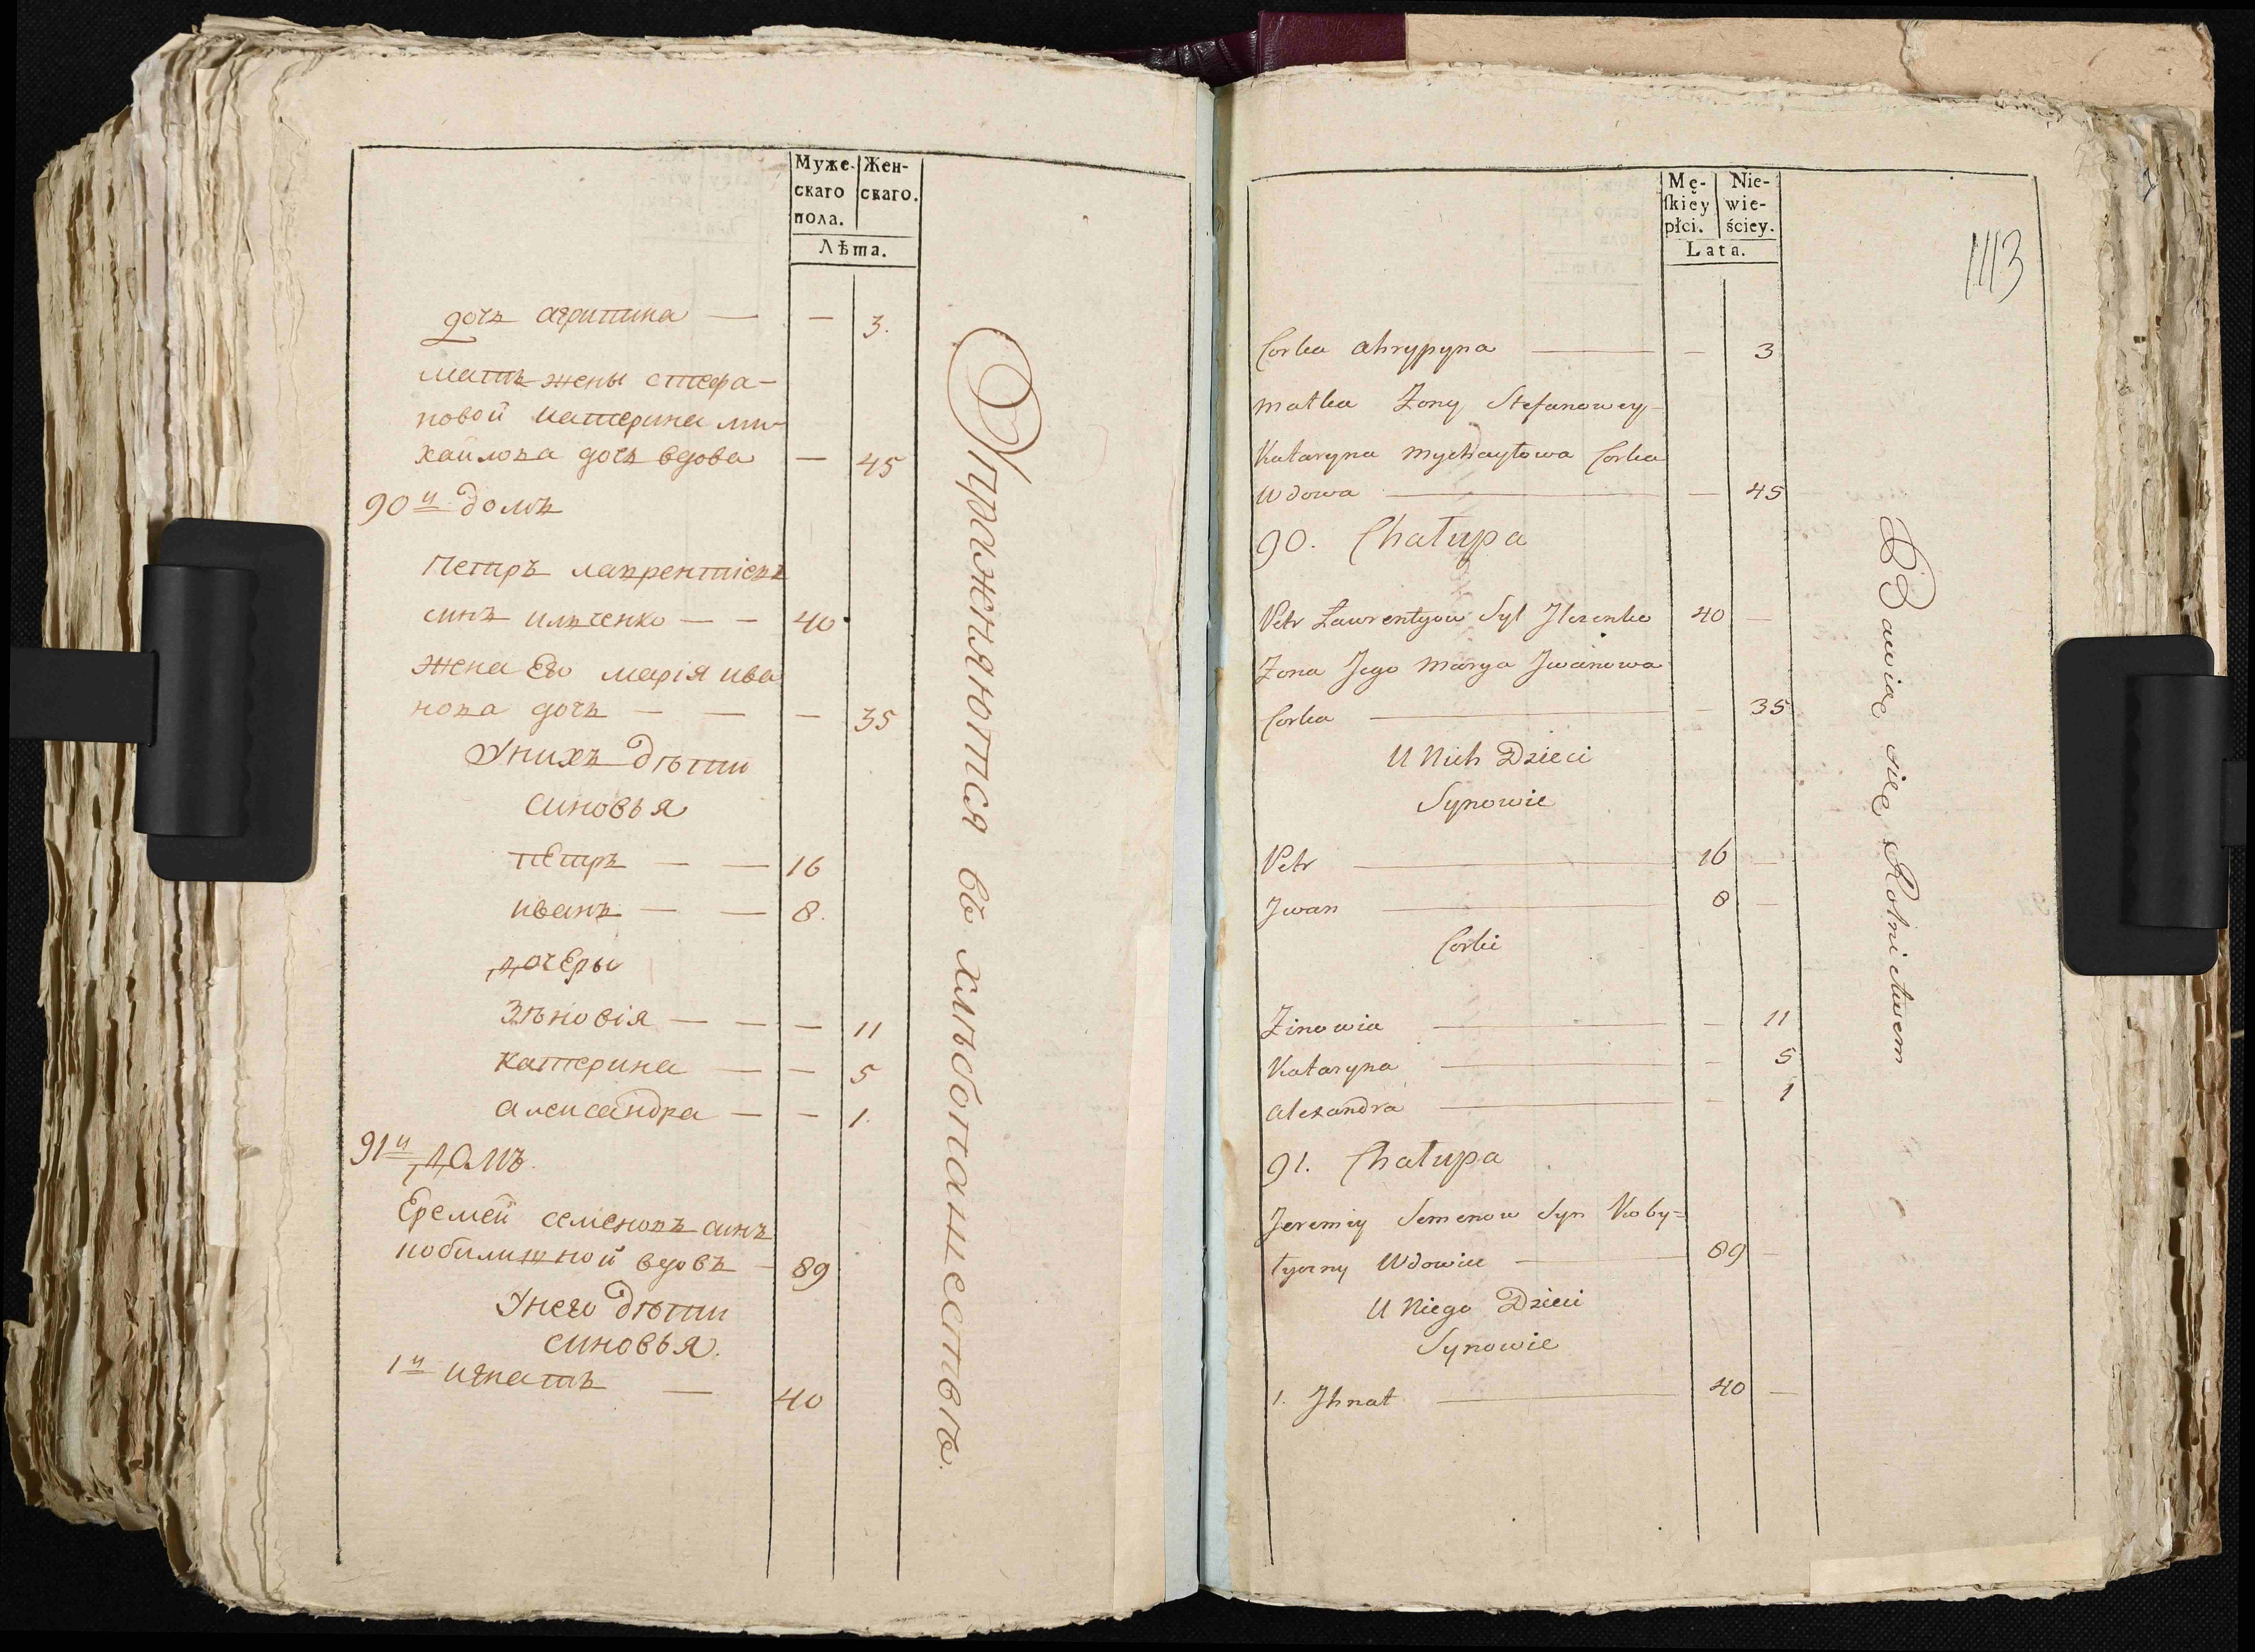 Муже- Жен-
скаго скаго.
пола.
Лѣта.
дочь агрипина — — 3.
мать жены стефа-
новой катерина ми-
хайлова дочь вдова — 45
90й домъ
Петръ лаврентіевъ
синъ илченко — — 40
жена Его марія ива
нова дочь — — — 35
Унихъ дѣти
синовья
пЕтръ — — 16
иванъ — — 8.
дочЕры
Зѣновія — — — 11
катерина — — 5
александра — — 1.
91й домъ.
Еремей семеновъ синъ
кобилишной вдовъ — 89
Унего дѣти
синовья.
1й игнатъ — 40
Упражняются въ хлѣбопашествѣ.
Mę- Nie-
skiey wie-
płci. ściey.
Lata.
113
Corka Ahrypyna — — 3
Matka Żony Stefanowey
Kataryna Mychayłowa Corka
Wdowa — — 45
90. Chałupa
Petr Ławrentyow Syn Ilczenko 40 —
Żona Jego Marya Jwanowa
Corka — — 35
U Nich Dzieci
Synowie
Petr — 16 —
Jwan — 8 —
Corki
Zinowia — — 11
Kataryna — — 5
Alexandra — — 1
91. Chałupa
Jeremiy Semenow Syn Koby=
łyczny Wdowiec — 89 —
U Niego Dzieci
Synowie
1. Jhnat — 40 —
Bawią się Rolnictwem